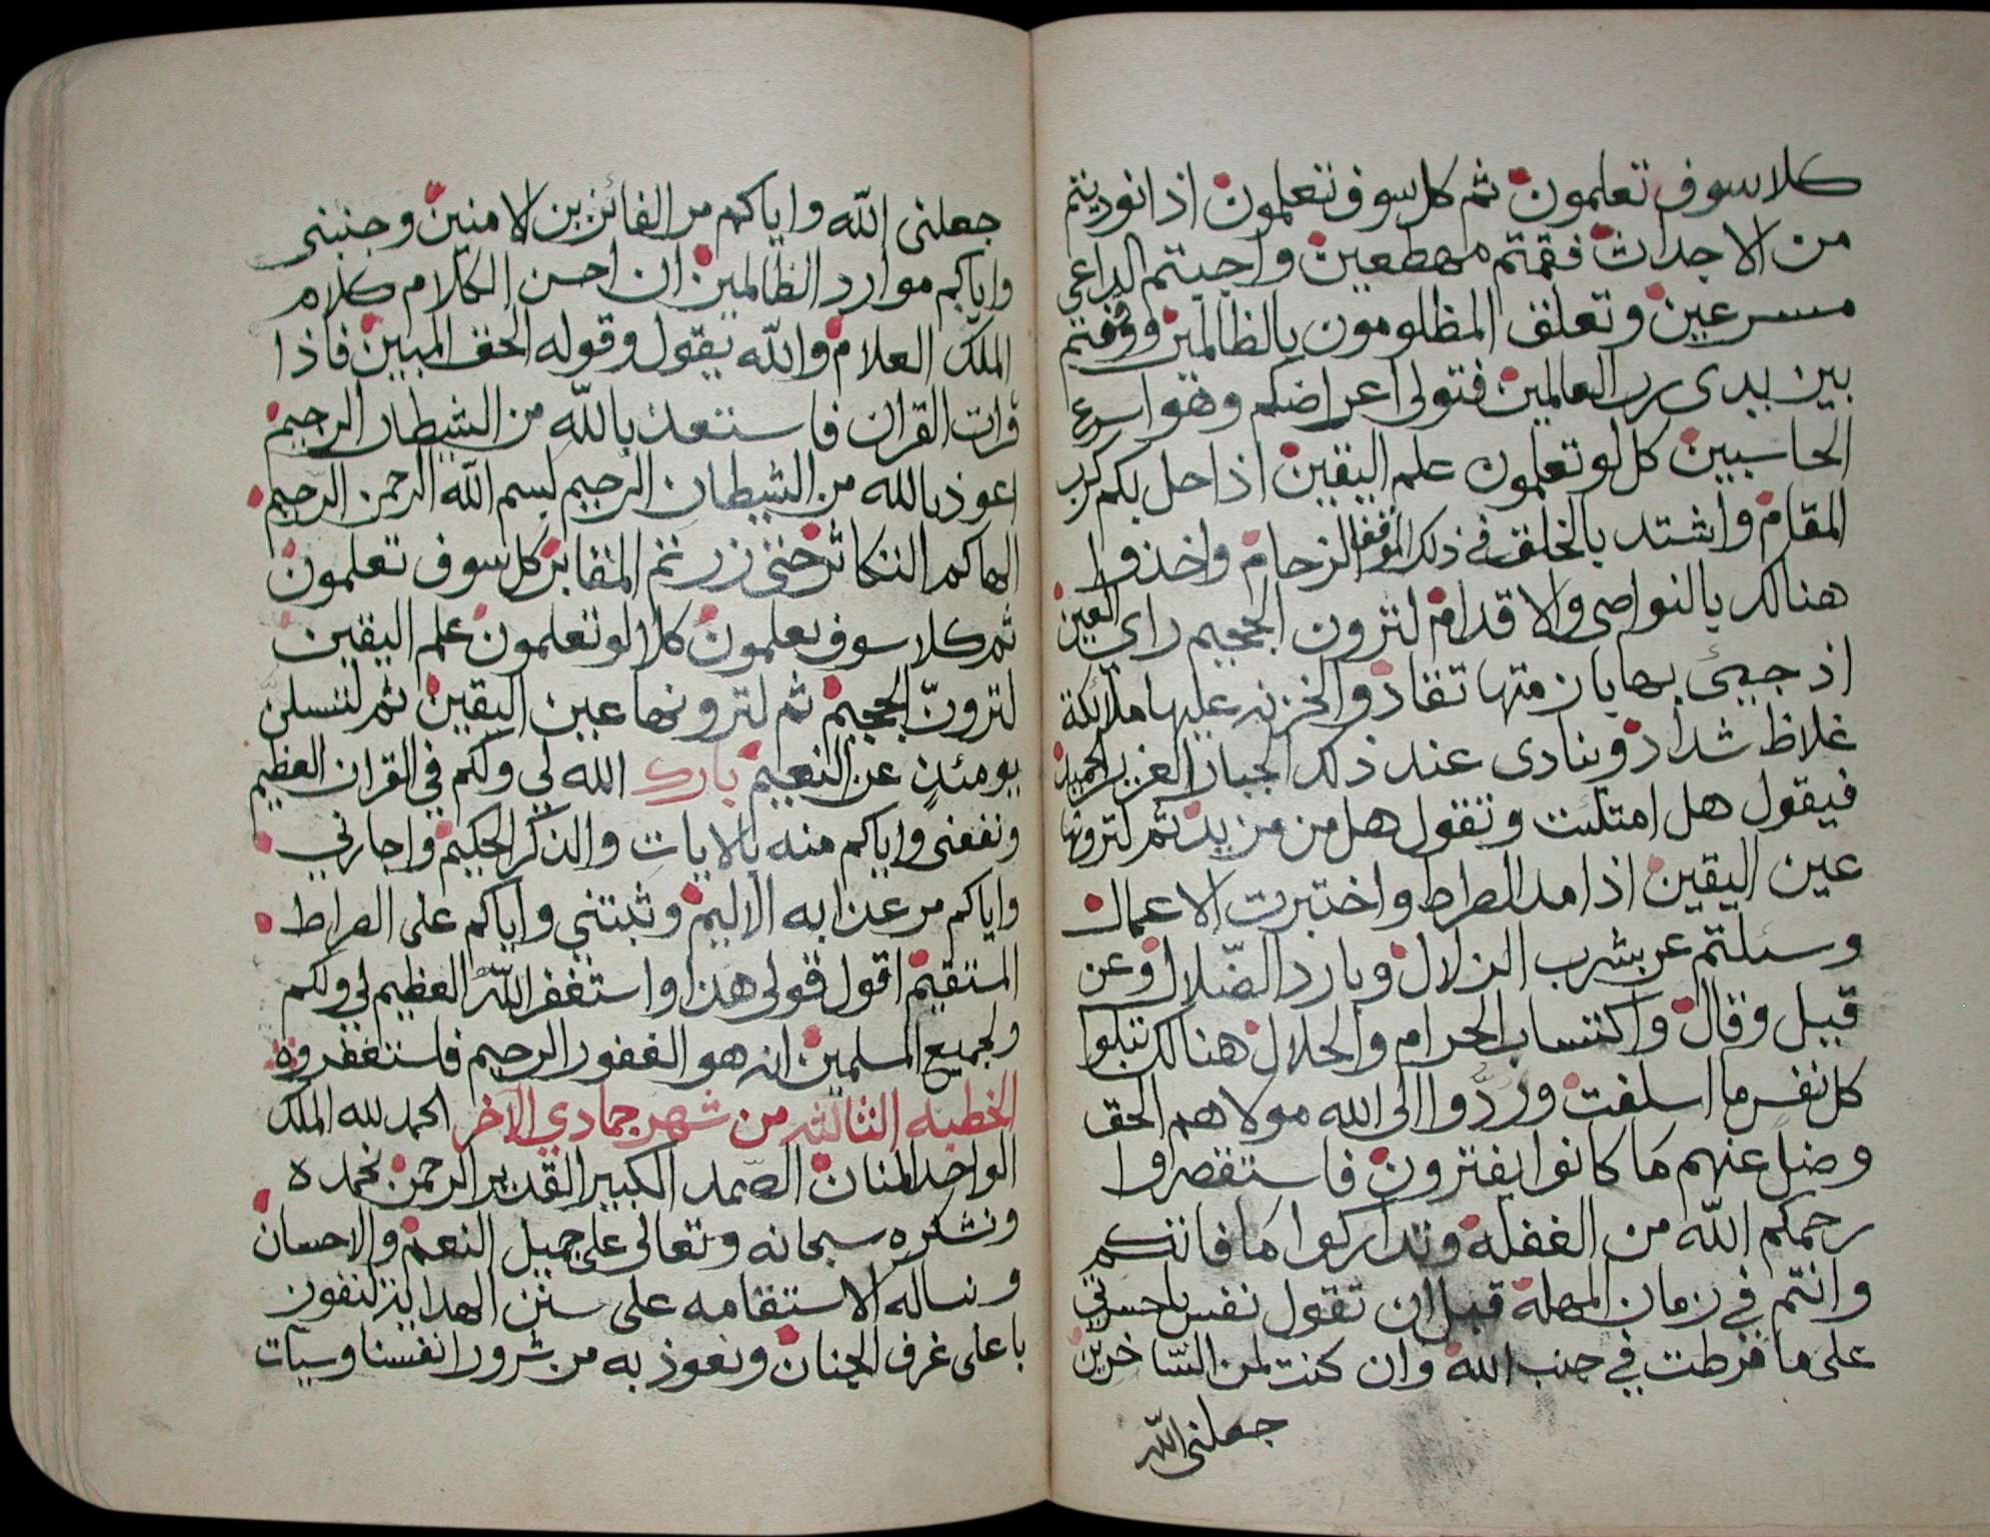 كلا سوف تعلمون ثم كل سوف تعلمون اذا نوديتم
من الاجداث فقمتم مهطعين واجبتم الداعي
مسرعين وتعلق المظلومون بالظالمين ووقفتم
بين يدى رب العالمين فتولى اعراضكم وهو اسرع
الحاسبين كل لو تعلمون علم اليقين اذا حل بكم كرب
المقام واشتد بالخلق في ذلك الموقف الزحام واخذوا
هنالك بالنواصى والاقدام لترون الجحيم راى العين
اذ جيئ بها بازمتها تقاد والخزنه عليها ملائكة
غلاظ شداد وينادى عند ذلك الجبار العزيز الحميد
فيقول هل امتلئت وتقول هل من مزيد ثم لترونها
عين اليقين اذا مد الصراط واختبرت الاعمال
وسئلتم عن شرب الزلال وبارد الضلال وعن
قيل وقال واكتساب الحرام والحلال هنالك تبلوا
كل نفس ما اسلفت وردوا الى الله مولاهم الحق
وضل عنهم ما كانوا يفترون فاستقصروا
رحمكم الله من الغفلة وتداركوا ما فاتكم
وانتم في زمان المهلة قبل ان تقول نفس ياحسرتي
على ما فرطت في جنب الله وان كنت لمن الساخرين
جعلنى الله
جعلنى الله واياكم من الفائزين الامنين وجنبنى
واياكم موارد الظالمين ان احسن الكلام كلام
الملك العلام والله يقول وقوله الحق المبين فاذا
قرات القران فاستعذ بالله من الشيطان الرجيم
اعوذ بالله من الشيطان الرجيم بسم الله الرحمن الرحيم
الهاكم التكاثر حتى زرتم المقابر كل سوف تعلمون
ثم كلا سوف تعلمون كلا لو تعلمون علم اليقين
لترونّ الجحيم ثم لترونها عين اليقين ثم لتسلنّ
يومئذٍ عن النعيم بارك الله لي ولكم في القران العظيم
ونفعنى واياكم منه بالايات والذكر الحكيم واجارني
واياكم من عذابه الاليم وثبتني واياكم على الصراط
المستقيم اقول قولى هذا واستغفر الله العظيم لي ولكم
ولجميع المسلمين انه هو الغفور الرحيم فاستغفروه
الخطبه الثالثه من شهر جمادي الآخر الحمد لله الملك
الواحد المنان الصمد الكبير القدير الرحمن نحمده
ونشكره سبحانه وتعالى على جميل النعم والاحسان
ونساله الاستقامه على سنن الهداية لنفوز
باعلى غرف الجنان ونعوذ به من شرور انفسنا وسيات